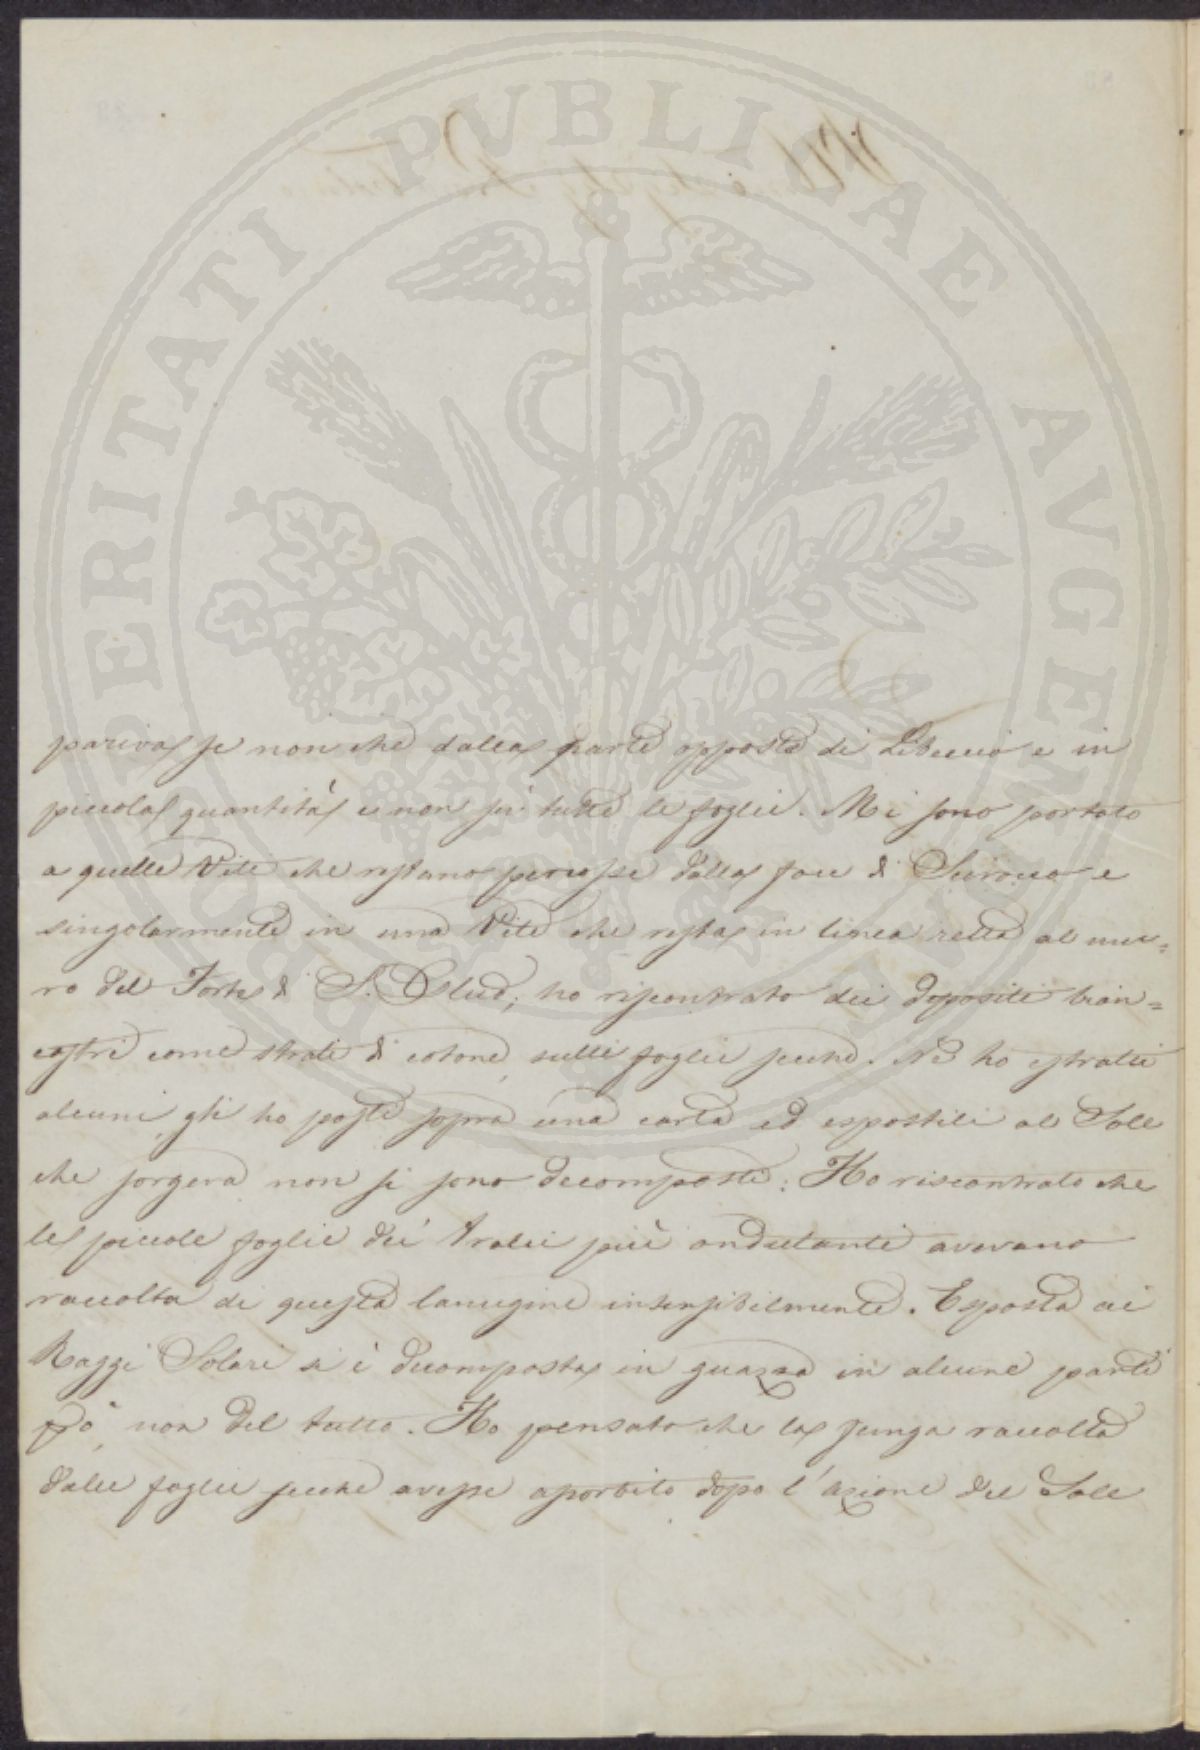 PROSPERITATI PVBLICAE AVGENDAE
pariva se non che dalla parte opposta di Libeccio e in
piccola quantità e non su tutte le foglie. Mi sono portato
a quelle Viti che restano percosse dalla foce di Scirocco e
singolarmente in una Vite che resta in linea retta al mu=
ro del Forte di S. ho riscontrato dei depositi bian=
castri come strati di cotone sulle foglie secche. Ne ho estratti
alcuni gli ho posti sopra una carta ed espostili al Sole
che sorgeva non si sono decomposti: Ho riscontrato che
le piccole foglie dei Tralci più ondulanti avevano
raccolta di questa lanugine insensibilmente. Esposta ai
Raggi Solari si è decomposta in guazza in alcune parti
però non del tutto. Ho pensato che la funga raccolta
dalle foglie secche avesse assorbito dopo l'azione del Sole